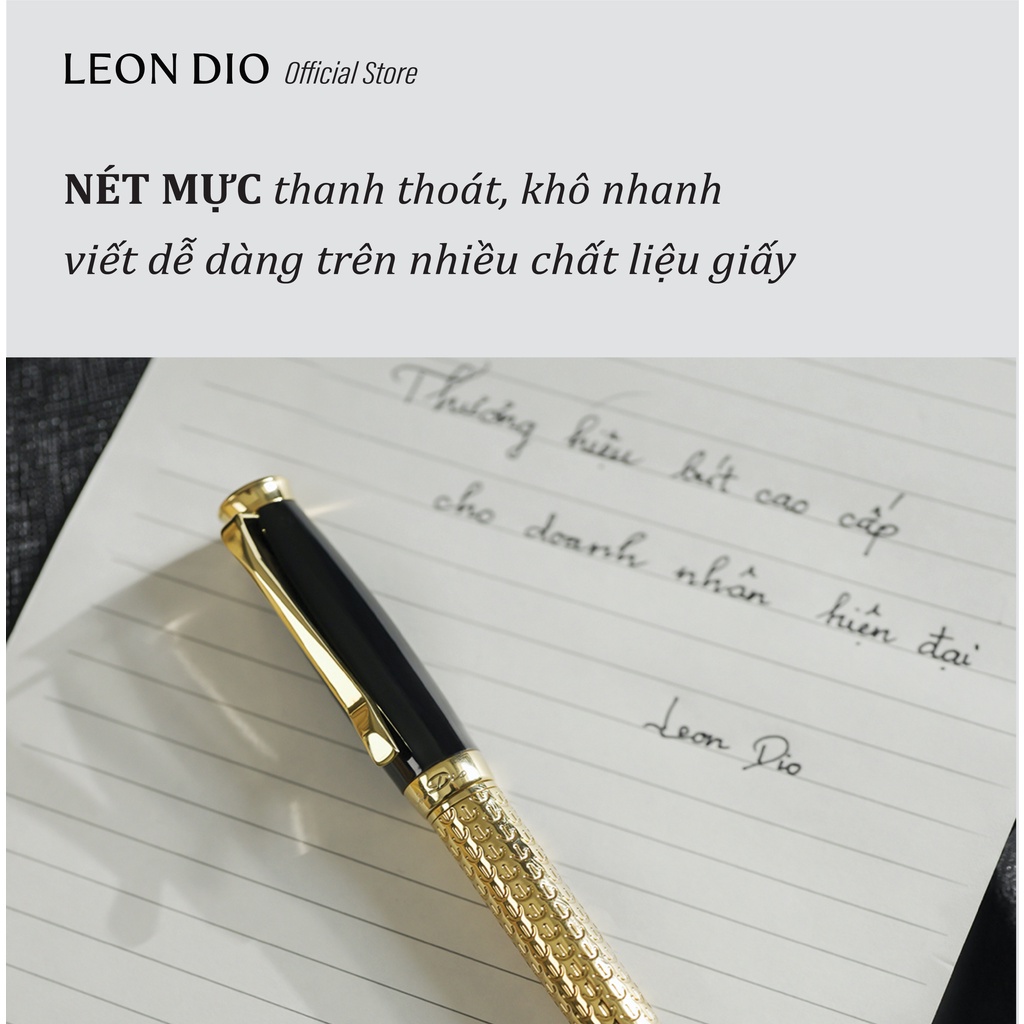 LEON DIO Official Store
NÉT MỰC thanh thoát, khô nhanh
viết dễ dàng trên nhiều chất liệu giấy
Thương hiệu bút cao cấp
cho doanh nhân hiện đại
Leon Dio